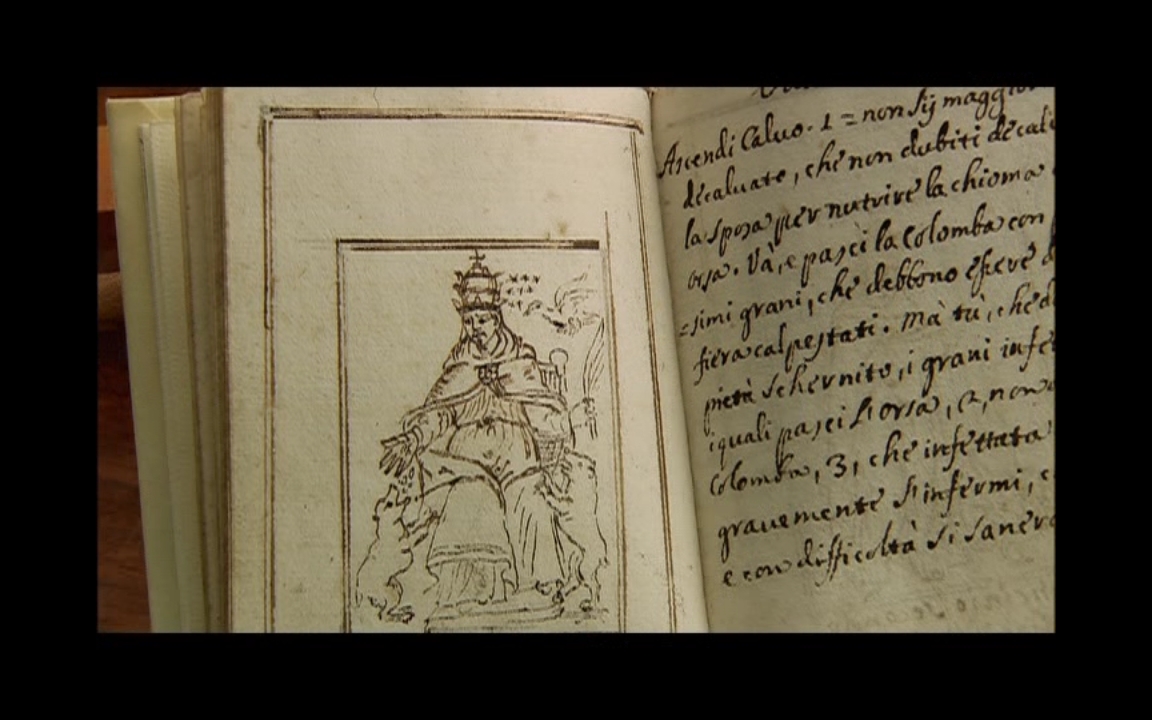 Ascendi Calvo. 1 = non sij maggior
decaluato, che non dubiti decal
la sposa per nutrire la chioma
orsa. Và, e pasci la Colomba con
=simi grani, che debbono essere
fiera calpestati. Mà tù, che
pietà schernito, i grani infe
iquali pasci l'orsa, e, non
Colomba, 3, che infettata
gravemente s'infermi, e
e con difficoltà si sanerà